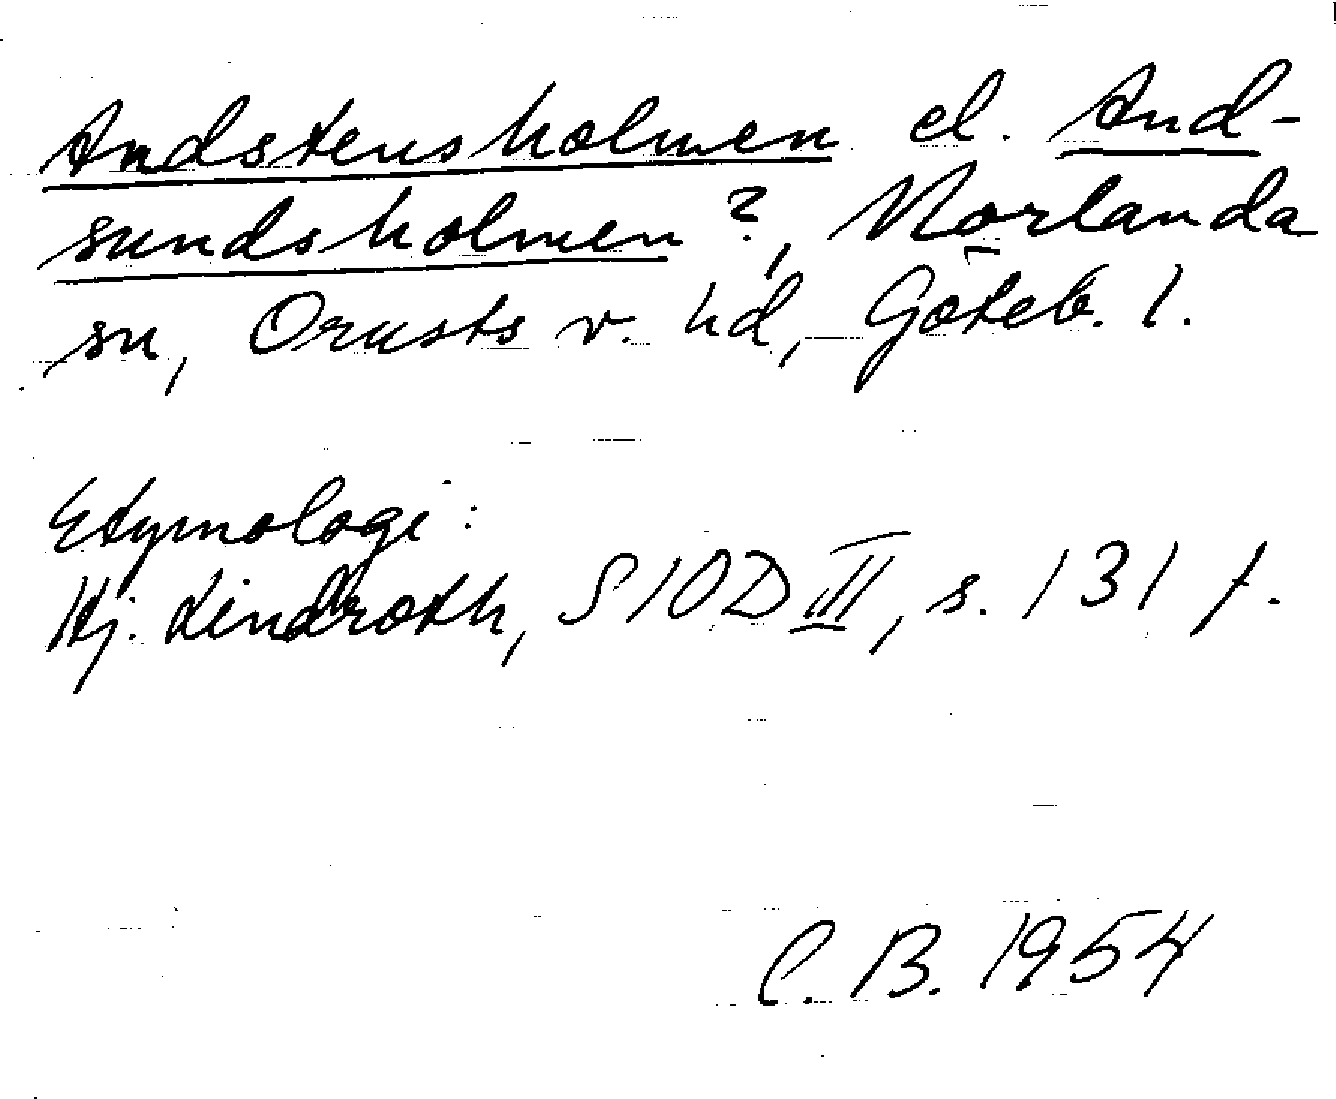 Andstensholmen el. And-
sundsholmen?, Morlanda
sn, Orusts v. hd, Göteb. l.
Etymologi:
Hj. Lindroth, SIOD III, s. 131 f.
C. B. 1954